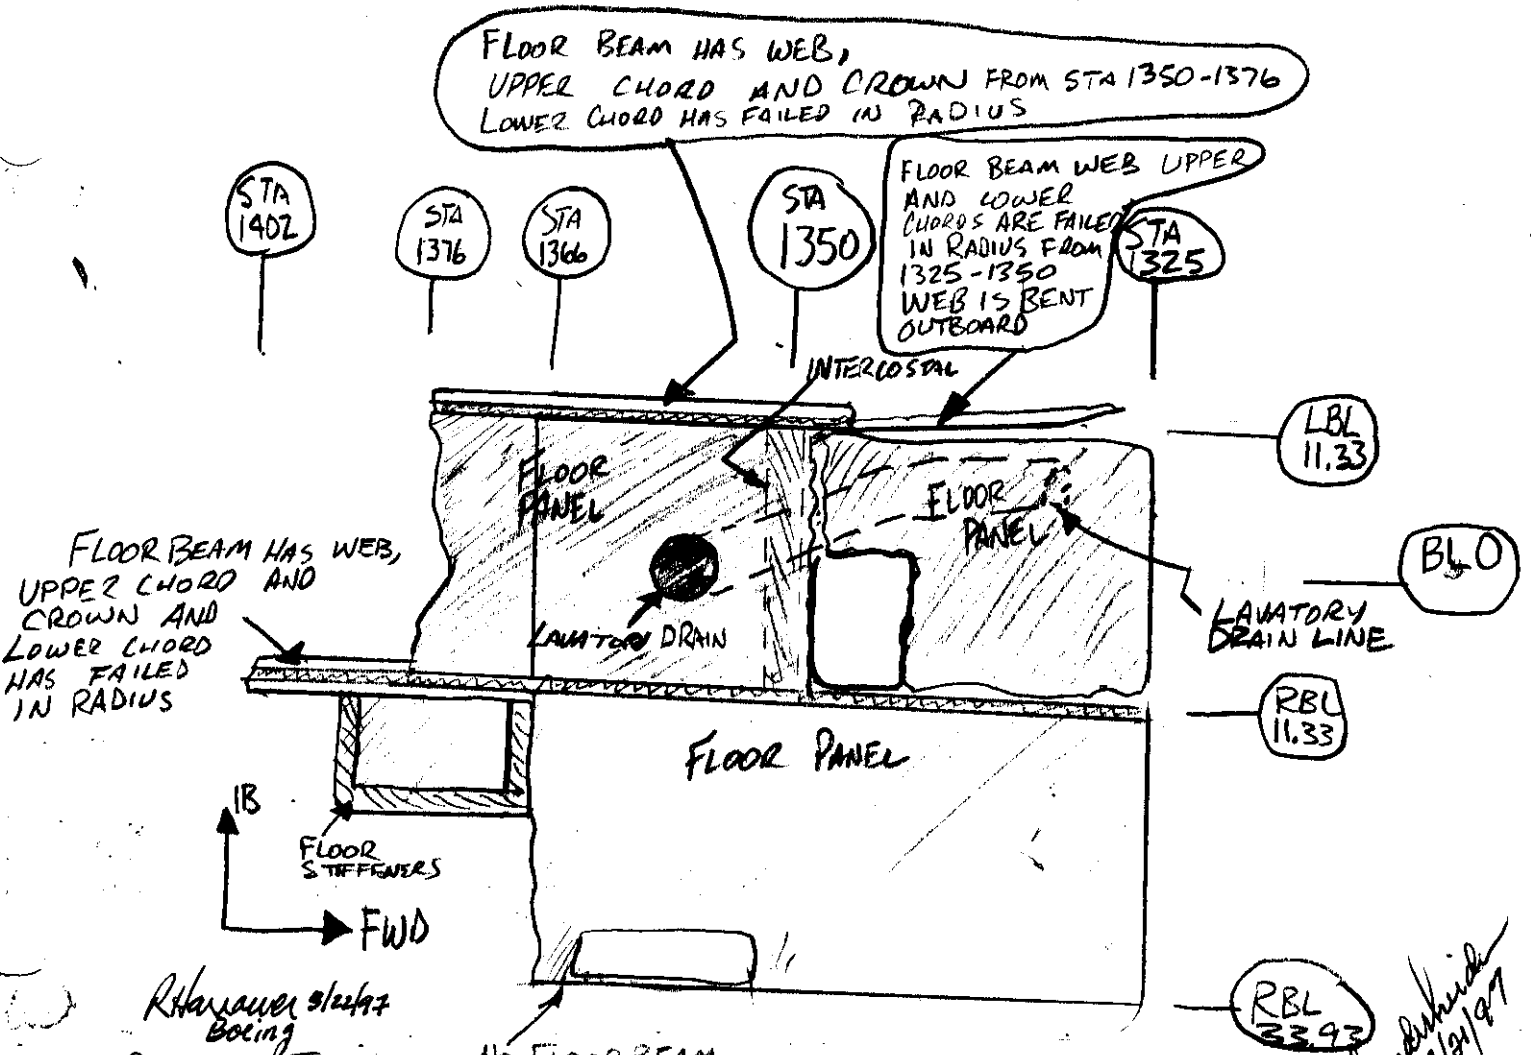 FLOOR BEAM HAS WEB,
UPPER CHORD AND CROWN FROM STA 1350-1376
LOWER CHORD HAS FAILED IN RADIUS
FLOOR BEAM WEB UPPER
AND LOWER
CHORDS ARE FAILED
IN RADIUS FROM
1325-1350
WEB IS BENT
OUTBOARD
STA
1402
STA
1376
STA
1366
STA
1350
STA
1325
INTERCOSTAL
LBL
11.33
FLOOR
PANEL
FLOOR
PANEL
BL 0
FLOOR BEAM HAS WEB,
UPPER CHORD AND
CROWN AND
LOWER CHORD
HAS FAILED
IN RADIUS
LAVATORY DRAIN
LAVATORY
DRAIN LINE
RBL
11.33
FLOOR PANEL
IB
FLOOR
STIFFENERS
FWD
3/22/97
Boeing
NO FLOOR BEAM
RBL
33.93